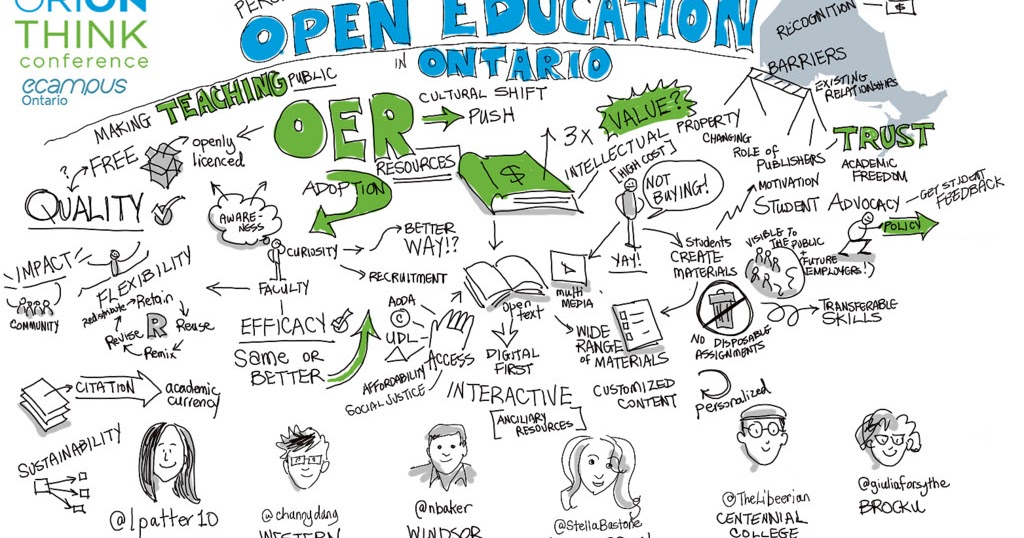 ORION
THINK
conference
ecampus
Ontario
OPEN EDUCATION
IN ONTARIO
RECOGNITION
$
BARRIERS
EXISTING
RELATIONSHIPS
MAKING TEACHING PUBLIC
OER
RESOURCES
CULTURAL SHIFT
PUSH
3X
VALUE?
INTELLECTUAL PROPERTY
[HIGH COST]
NOT
BUYING!
YAY!
CHANGING
ROLE OF
PUBLISHERS
MOTIVATION
TRUST
ACADEMIC
FREEDOM
STUDENT ADVOCACY
GET STUDENT
FEEDBACK
POLICY
? FREE
openly
licenced
QUALITY
ADOPTION
$
AWARE-
NESS
CURIOSITY
BETTER
WAY!?
RECRUITMENT
FACULTY
IMPACT
COMMUNITY
FLEXIBILITY
Retain
Reuse
Remix
Revise
redistribute
R
EFFICACY
SAME OR
BETTER
AODA
C
UDL
ACCESS
AFFORDABILITY
SOCIAL JUSTICE
open
text
DIGITAL
FIRST
multi
MEDIA
WIDE
RANGE
OF MATERIALS
Students
CREATE
MATERIALS
VISIBLE TO
THE PUBLIC
+
FUTURE
EMPLOYERS!)
NO DISPOSABLE
ASSIGNMENTS
TRANSFERABLE
SKILLS
CITATION
academic
currency
INTERACTIVE
[ANCILIARY
RESOURCES]
CUSTOMIZED
CONTENT
personalized
SUSTAINABILITY
@lpatter10
@channydang
WESTERN
@nbaker
WINDSOR
@StellaBastone
@TheLibeerian
CENTENNIAL
COLLEGE
@giuliaforsythe
BROCKU